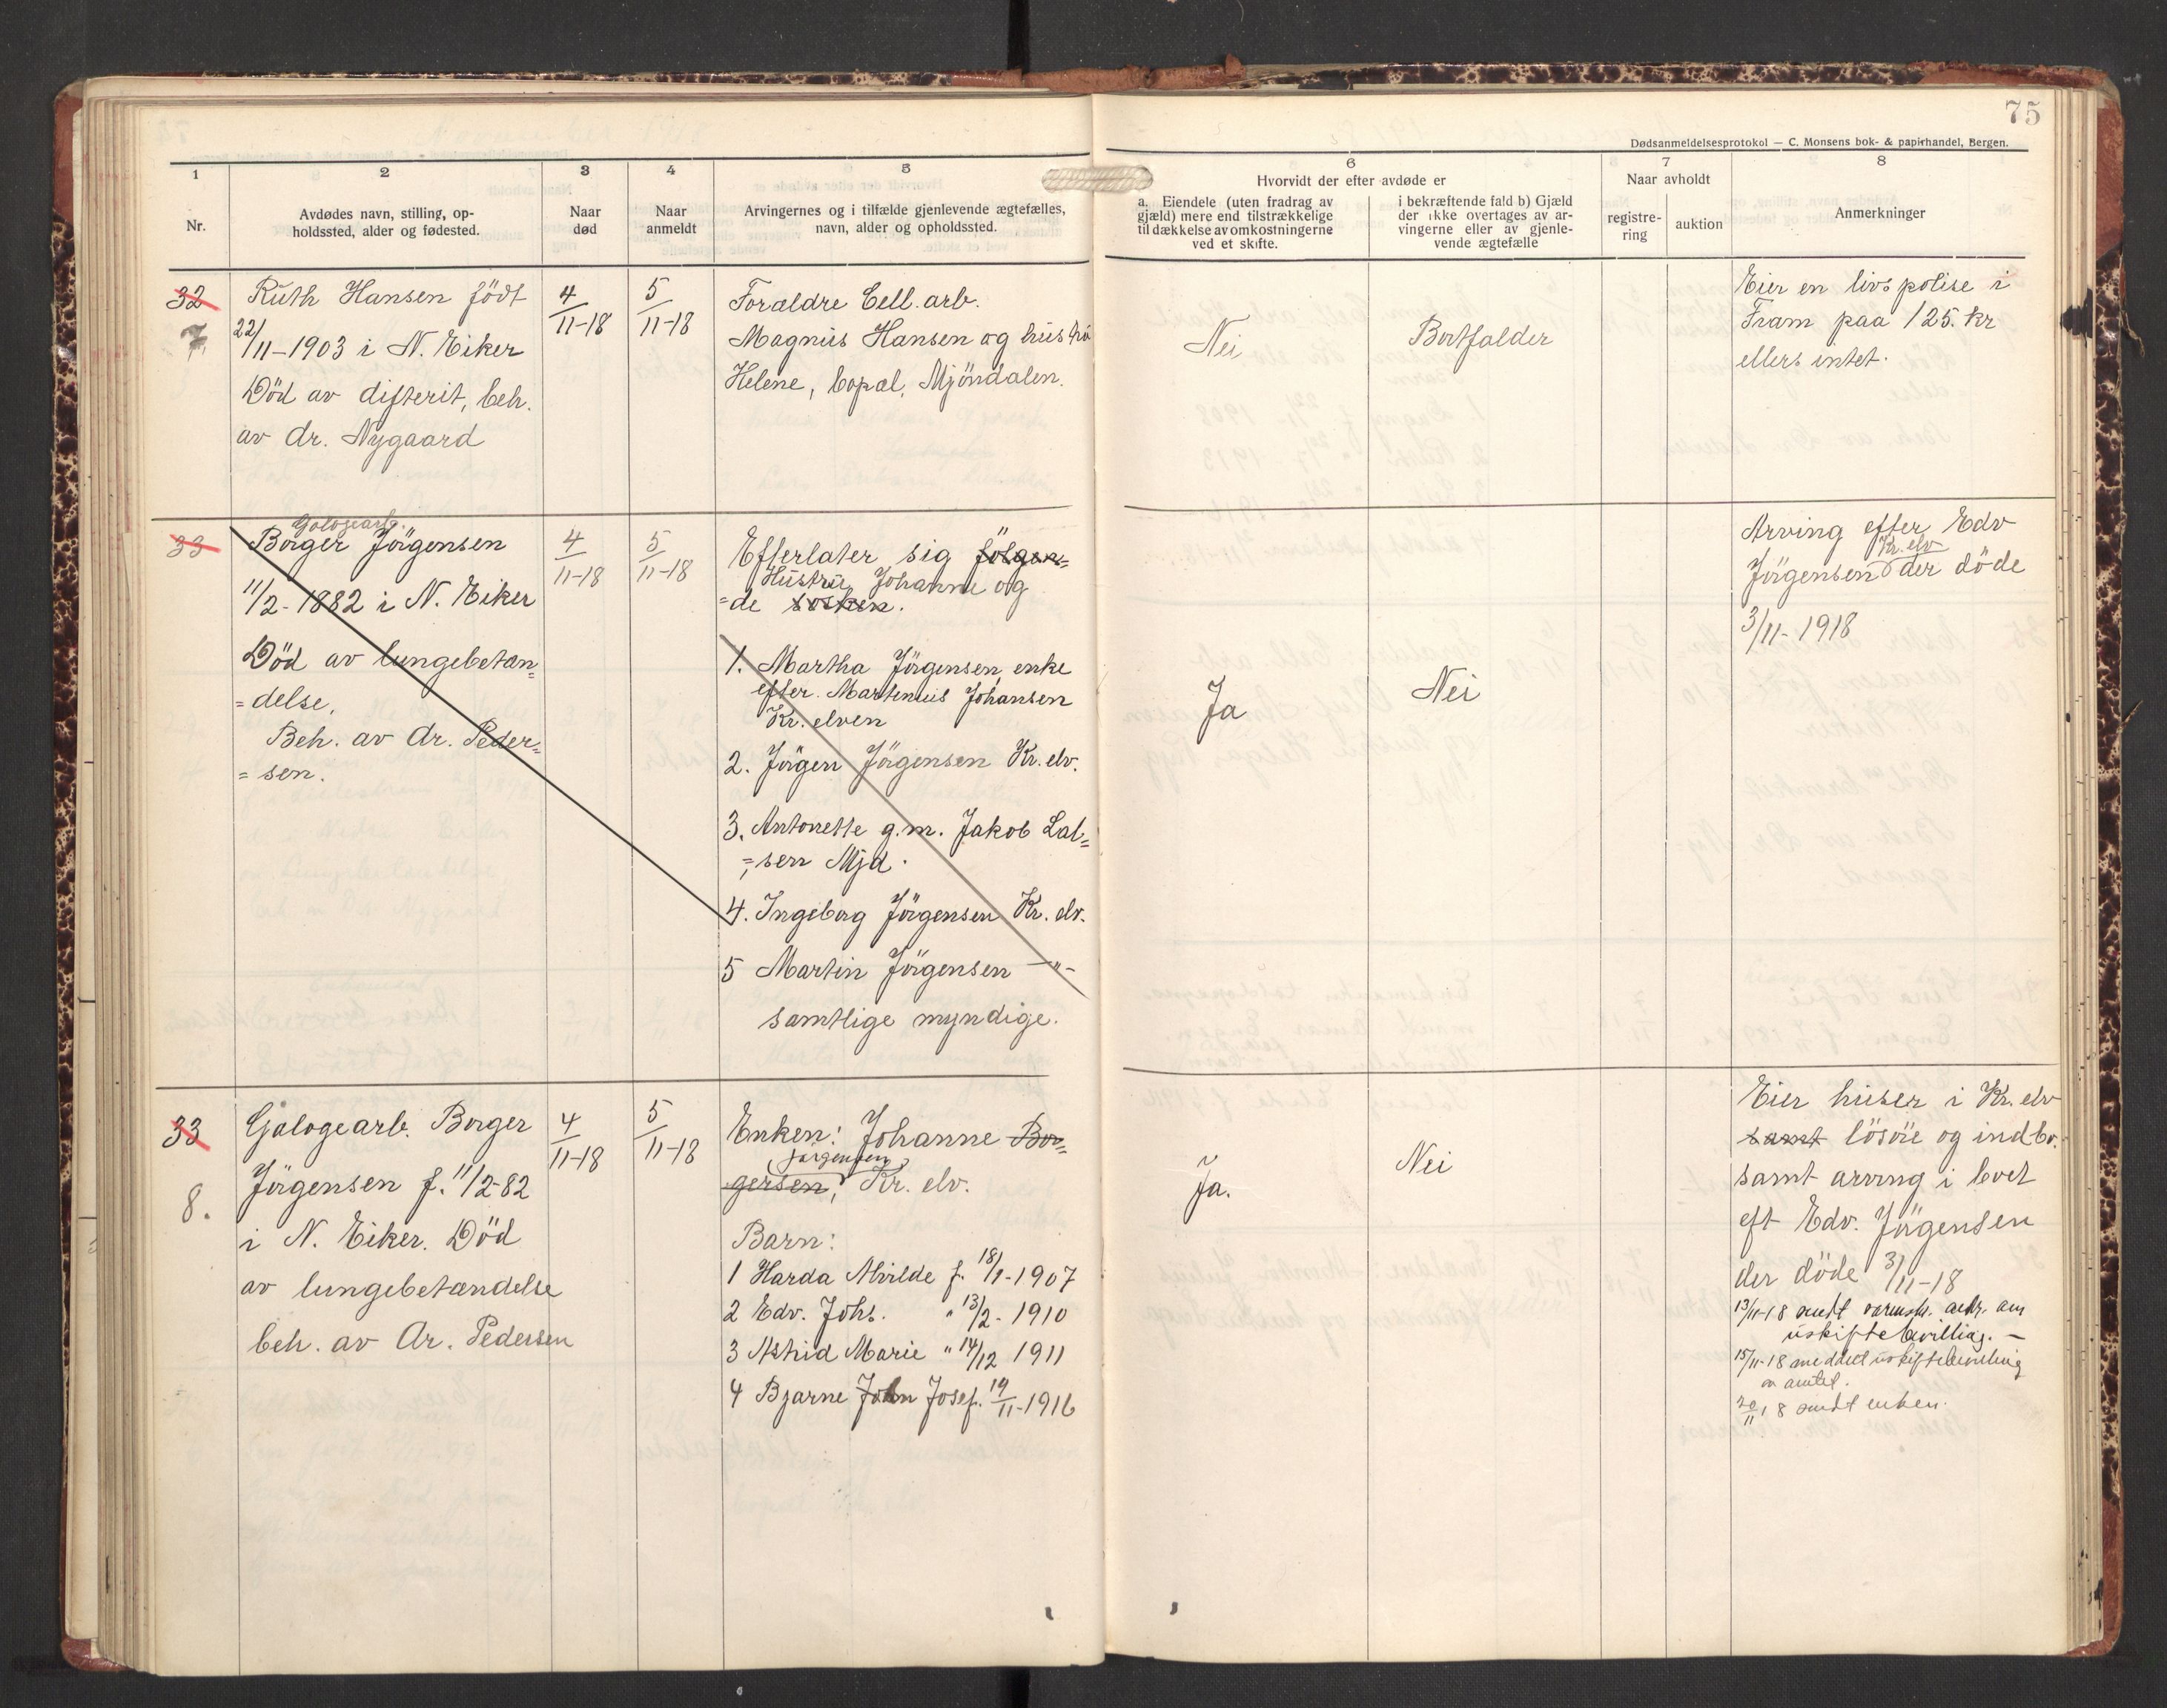 75
Dødsanmeldelsesprotokol — C. Monsens bok- & papirhandel, Bergen.
1
Nr.
2
Avdødes navn, stilling, op-
holdssted, alder og fødested.
3
Naar
død
4
Naar
anmeldt
5
Arvingernes og i tilfælde gjenlevende ægtefælles,
navn, alder og opholdssted.
6
Hvorvidt der efter avdøde er
a. Eiendele (uten fradrag av
gjæld) mere end tilstrækkelige
til dækkelse av omkostningerne
ved et skifte.
i bekræftende fald b) Gjæld
der ikke overtages av ar-
vingerne eller av gjenle-
vende ægtefælle
7
Naar avholdt
registre-
ring
auktion
8
Anmerkninger
32
7
Ruth Hansen født
22/11-1903 i N. Eiker
Död av difterit, beh.
av dr. Nygaard
4/11-18
5/11-18
Forældre Cell. arb.
Magnus Hansen og hustru
Helene, Copal, Mjöndalen.
Nei
Bortfalder
Eier en livspolise i
Fram paa 125. kr
ellers intet.
33
Galogearb.
Borger Jörgensen
11/2-1882 i N. Eiker
Död av lungebetæn=
=delse.
Beh. av dr. Peder=
=sen.
4/11-18
5/11-18
Efterlater sig fölgen=
Hustru Johanne og
=de sösken.
1. Martha Jörgensen, enke
efter Martenius Johansen
Kr. elven
2. Jörgen Jörgensen Kr. elv.
3. Antonette g.m. Jakob Lal=
=sen Mjd.
4. Ingeborg Jörgensen Kr. elv.
5 Martin Jörgensen —"—
samtlige myndige.
Ja
Nei
Arving efter Edv
Kr. elv
Jörgensen der döde
3/11-1918
33
8.
Galogearb. Borger
Jörgensen f. 11/2-82
i N. Eiker. Död
av lungebetændelse
beh. av Dr. Pedersen
4/11-18
5/11-18
Enken: Johanne Bor=
Jørgensen
gersen, Kr. elv.
Barn:
1 Harda Mirlde f. 18/1-1907
2 Edv. Johs. " 13/2-1910
3 Astrid Marie " 14/12 1911
4 Bjarne John Josef. 19/11-1916
Ja.
Nei
Eier huser i Kr. elv
samt lösöre og indbo.
samt arving i boet
eft Edv. Jörgensen
der döde 3/11-18
13/11-18 sendt andr. om
uskiftebevillig. —
15/11-18 meddelt uskiftebevilling
av amtet.
20/11 18 sendt enken.